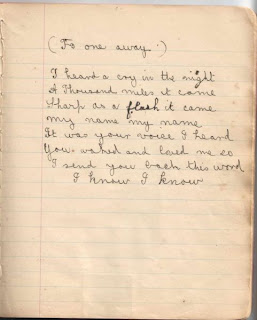 (To one away!)
I heard a cry in the night
A thousand miles it came
Sharp as a flash it came
my name my name
It was your voice I heard
You waked and loved me so
I send you back this word
I know I know